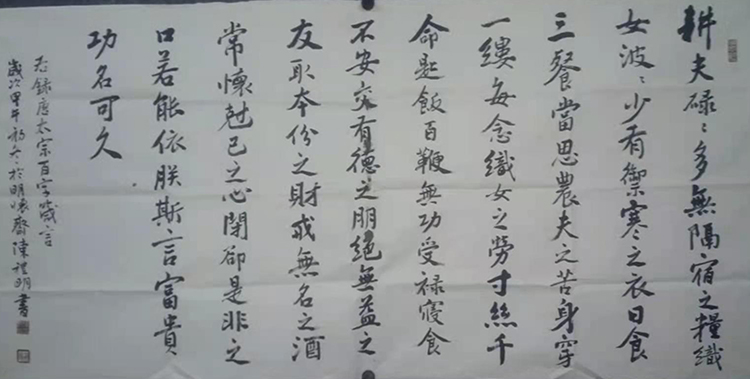 耕夫碌〻多無隔宿之糧織
女波〻少有禦寒之衣日食
三餐當思農夫之苦身穿
一縷每念織女之勞寸絲千
命匙飯百鞭無功受禄寢食
不安交有德之朋絕無益之
友取本份之財戒無名之酒
常懷尅己之心閉卻是非之
口若能依朕斯言富貴
功名可久
録唐太宗百字箴言
歲次甲午初冬於明懷齋陳禮明書